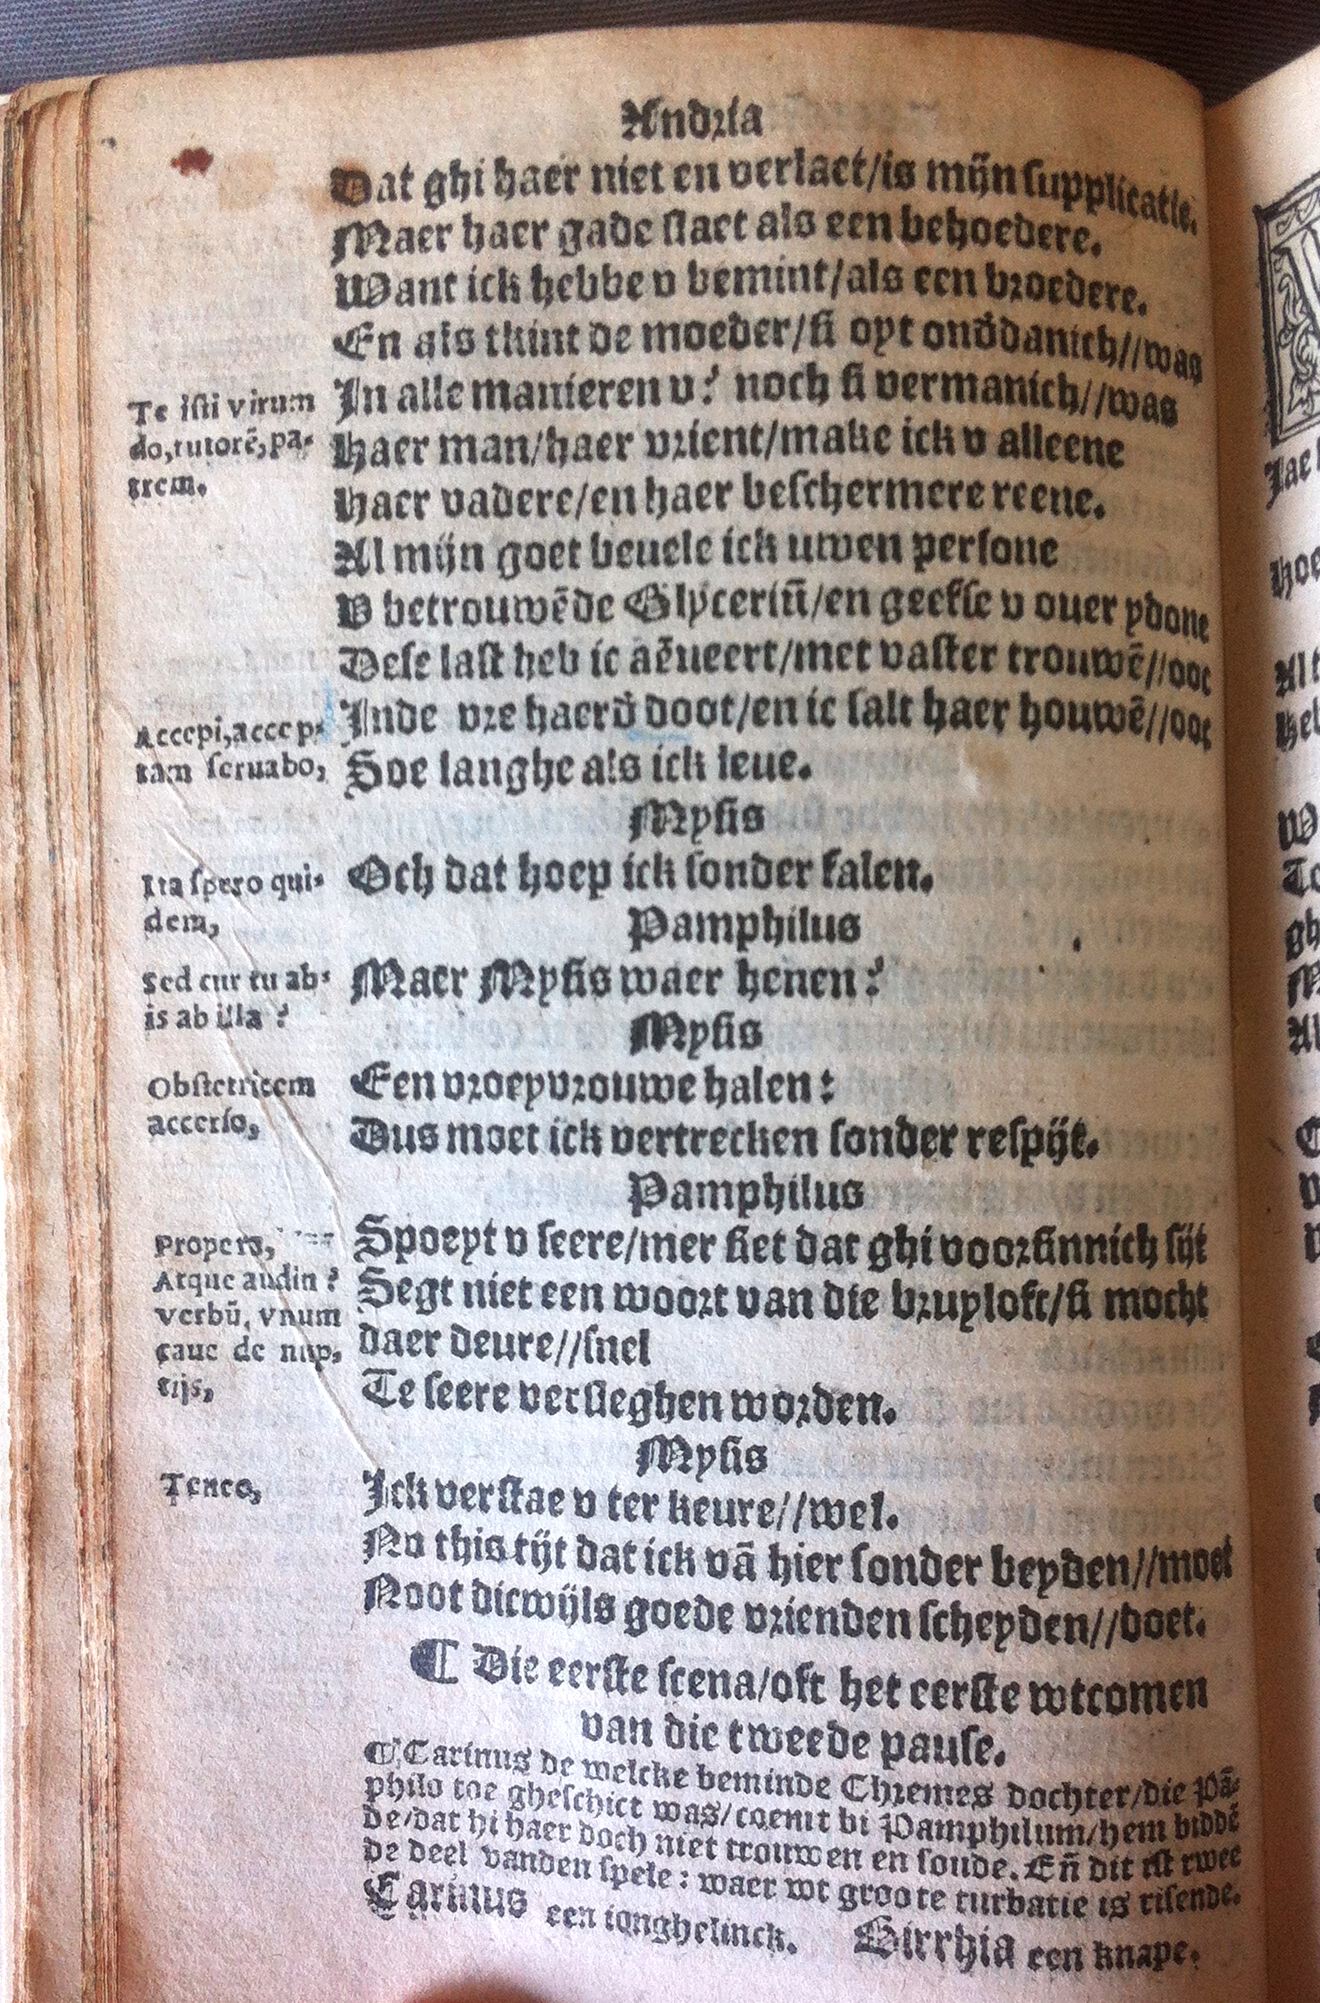 Andria
Dat ghi haer niet en verlaet/is mijn supplicatie.
Maer haer gade slaet als een behoedere.
Want ick hebbe v bemint/als een broedere.
En als tkint de moeder/si oyt onđdanich//was
Te isti virum
do,tutorē,pa-
trem.
In alle manieren v? noch si vermanich//was
Haer man/haer vrient/make ick v alleene
Haer vadere/en haer beschermere reene.
Al mijn goet beuele ick uwen persone
V betrouwēde Glyceriū/en geefse v ouer ydone
Dese last heb ic aēueert/met vaster trouwē//ooc
Accepi,accep-
tam seruabo,
Inde vre haerđ doot/en ic salt haer houwē//ooc
Soe langhe als ick leue.
Mysis
Ita spero qui-
dem,
Och dat hoep ick sonder falen.
Pamphilus
Sed cur tu ab-
is ab illa?
Maer Mysis waer henen?
Mysis
Obstetricem
accerso,
Een vroeyvrouwe halen:
Dus moet ick vertrecken sonder respijt.
Pamphilus
Propera,
Atque audin?
verbū, vnum
caue de nup-
tijs,
Spoeyt v seere/mer siet dat ghi voorsinnich sijt
Segt niet een woort van die bruyloft/si mocht
daer deure//snel
Te seere versleghen worden.
Mysis
Teneo,
Ick verstae v ter keure//wel.
Nu this tijt dat ick vā hier sonder beyden//moet
Noot dicwijls goede vrienden scheyden//doet.
¶ Die eerste scena/oft het eerste wtcomen
van die tweede pause.
¶ Carinus de welcke beminde Chremes dochter/die Pā-
philo toe gheschict was/coemt bi Pamphilum/hem biddē
de/dat hi haer doch niet trouwen en soude. Eñ dit ist twee
de deel vanden spele: waer wt groote turbatie is risende.
Carinus een ionghelinck. Birrhia een knape.